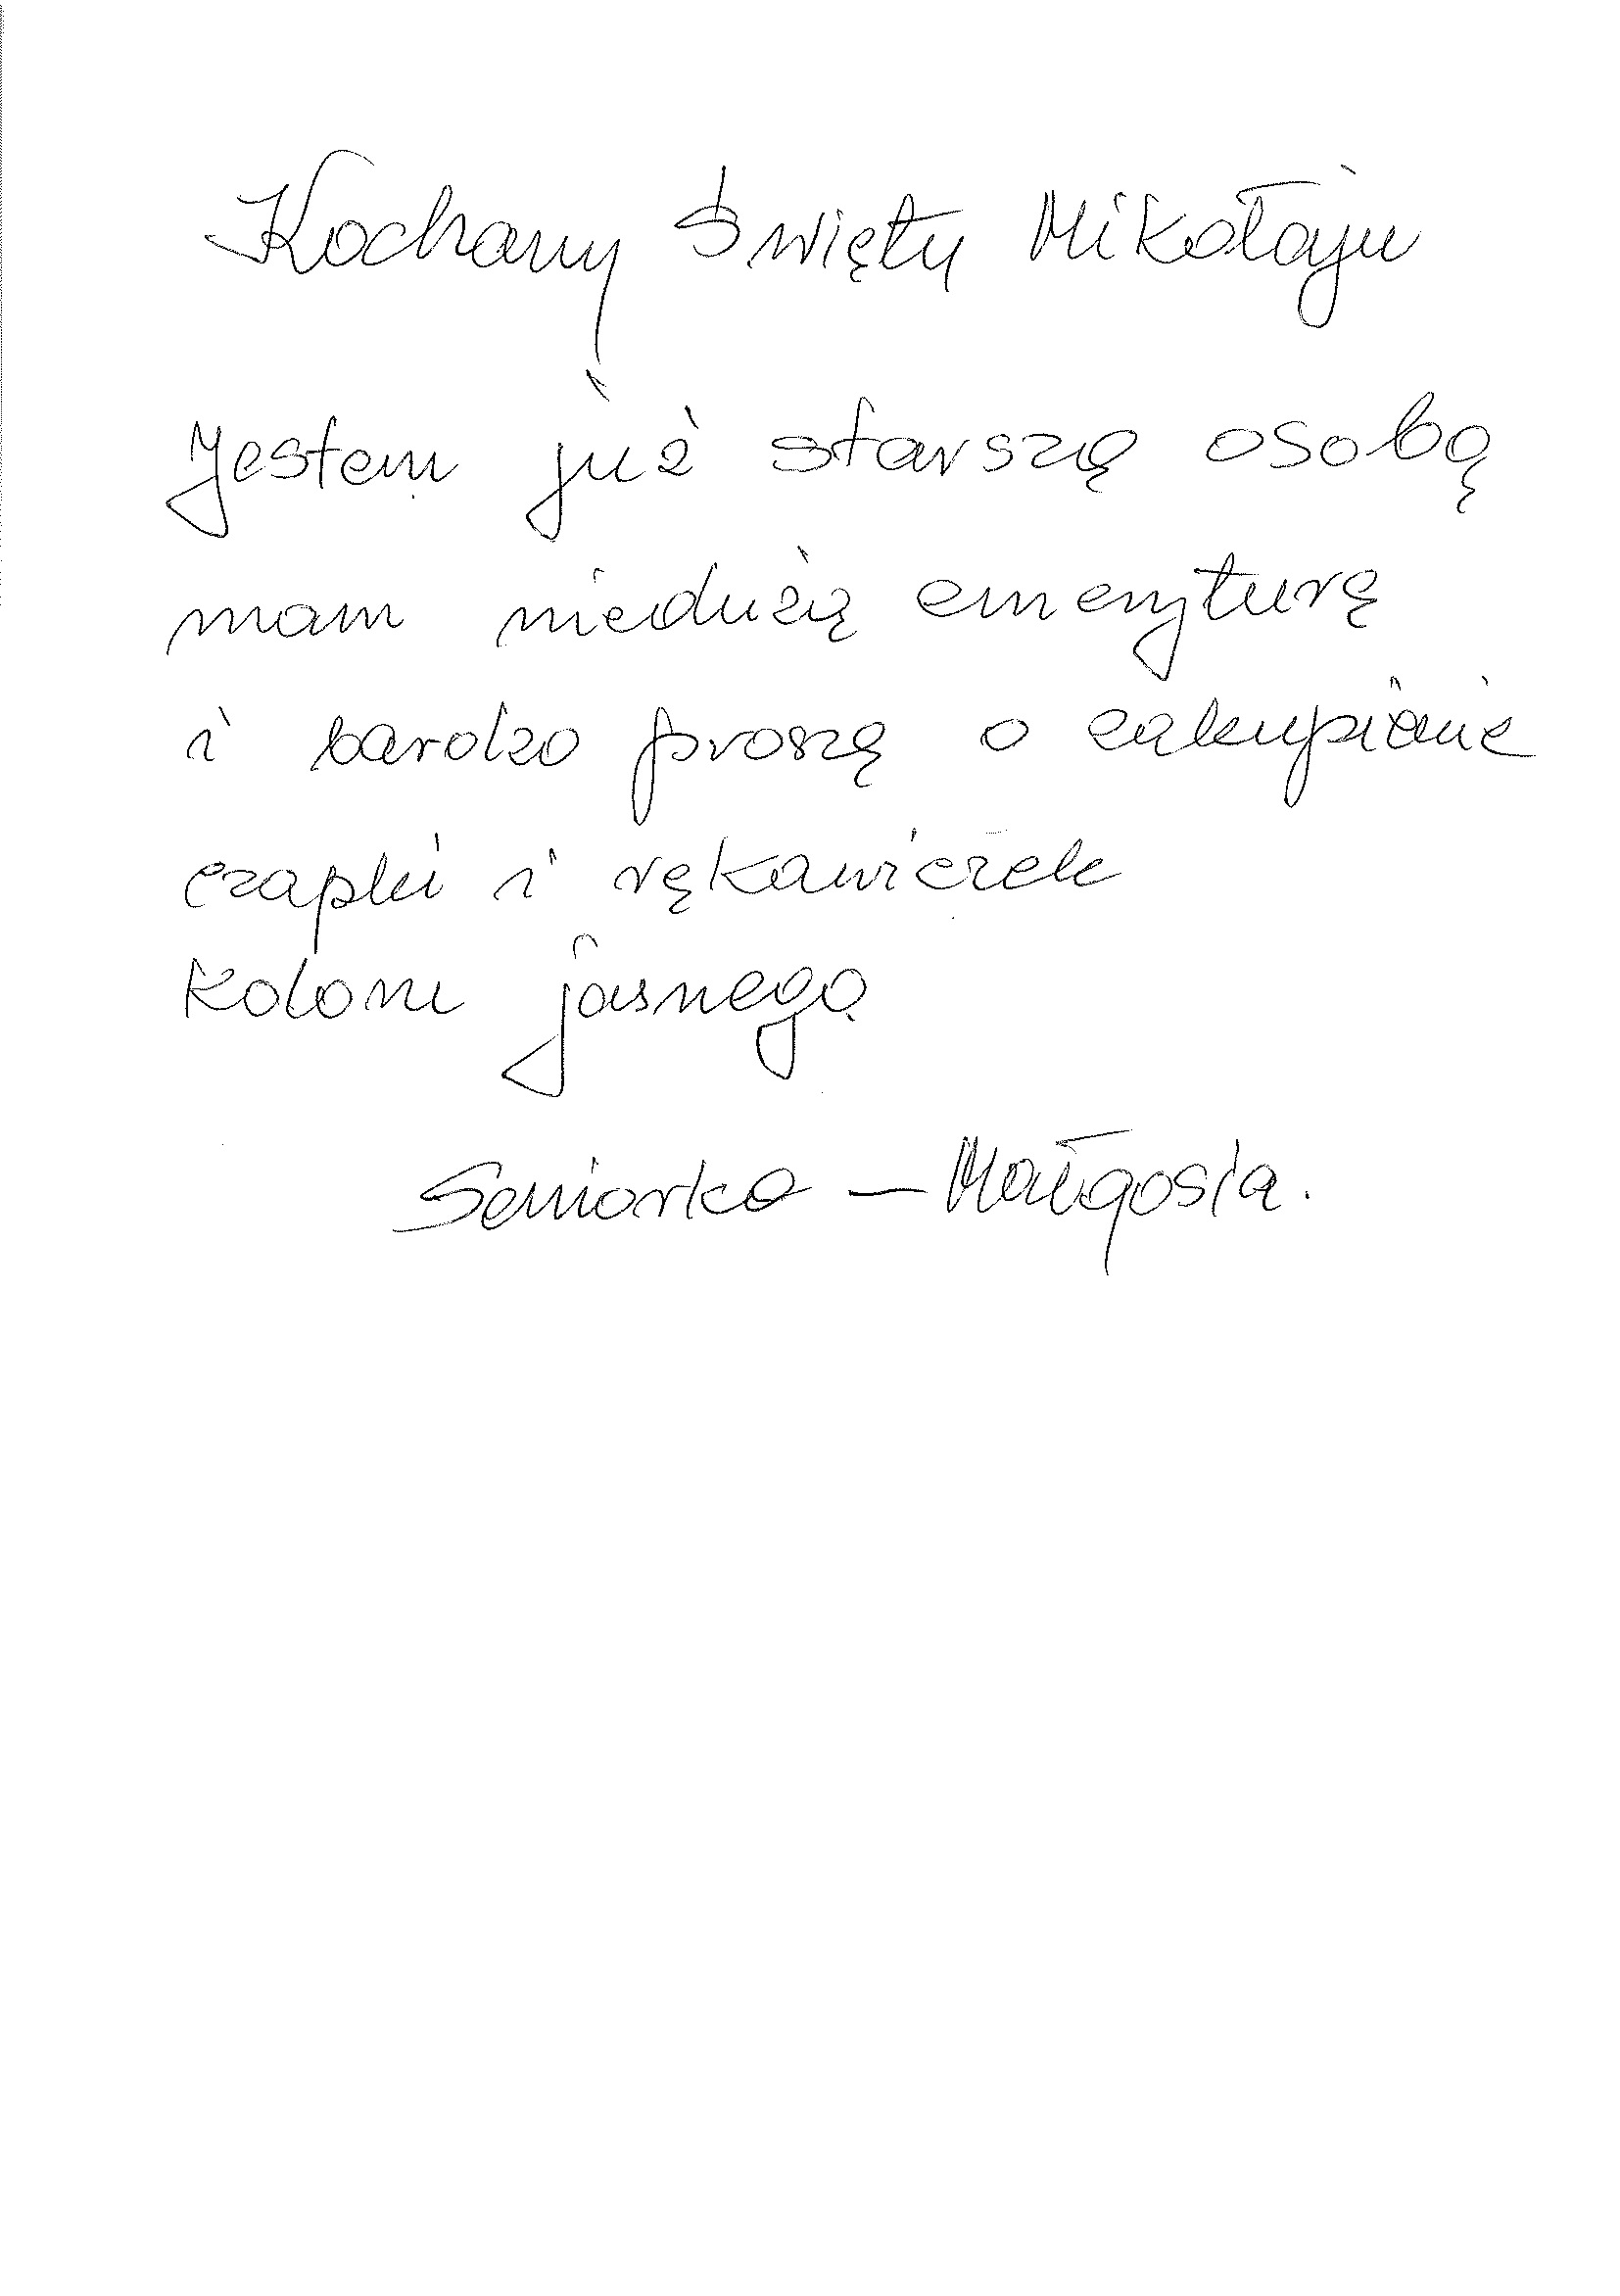 Kochany Święty Mikołaju
Jestem już starszą osobą
mam niedużą emeryturę
i bardzo proszę o zakupienie
czapki i rękawiczek
koloru jasnego
Seniorka – Małgosia.